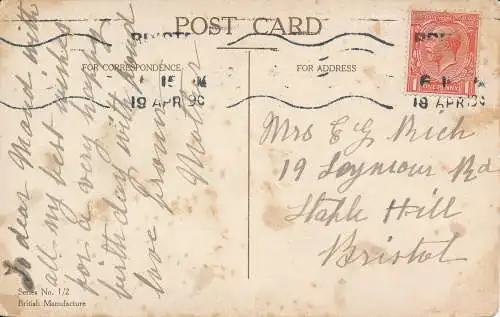 POST CARD
FOR CORRESPONDENCE
FOR ADDRESS
BRISTOL
6 15
19 APR 29
18 APR 29
ONE PENNY
To dear Maud with
all my best wishes
for a very happy
birthday with fond
love from
Mother
Mrs E G Rich
19 Seymour Rd
Staple Hill
Bristol
Series No. 1/2
British Manufacture